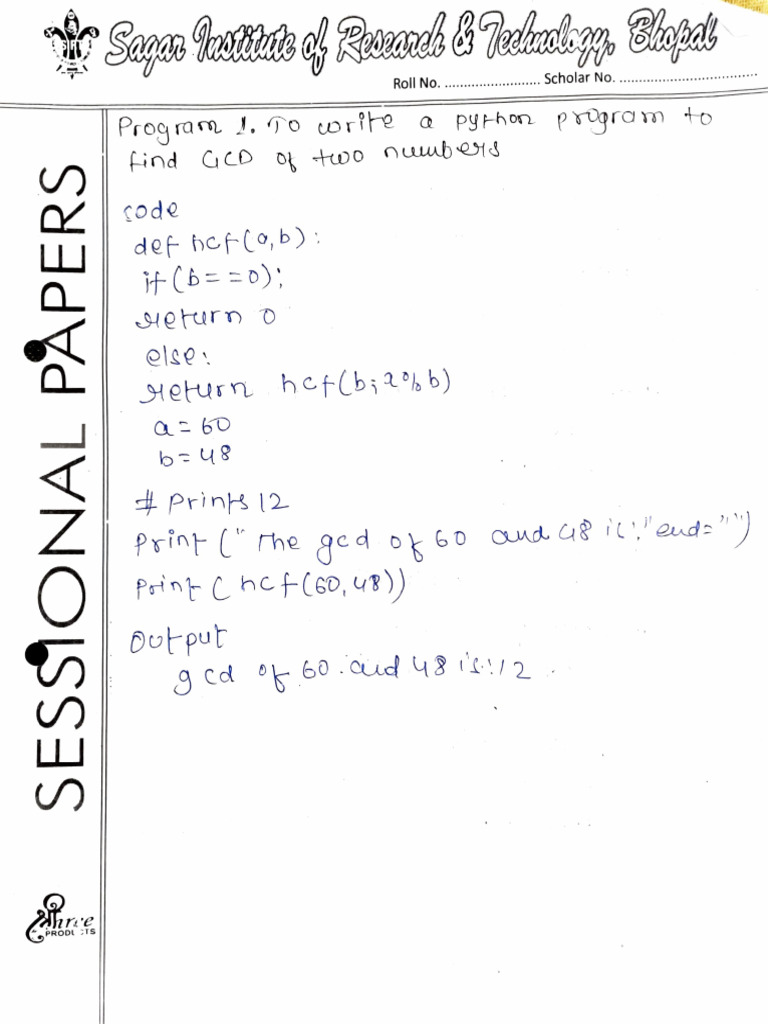 Sagar Institute of Research & Technology, Bhopal
Roll No. ........................ Scholar No. ..................................
SESSIONAL PAPERS
Program 1. To write a python program to
find GCD of two numbers
code
def hcf(a,b):
if(b==0);
return 0
else:
return hcf(b;a%b)
a=60
b=48
# Prints 12
Print ("The gcd of 60 and 48 is:" end="")
Print (hcf(60,48))
Output
gcd of 60 and 48 is:12
Shree
PRODUCTS